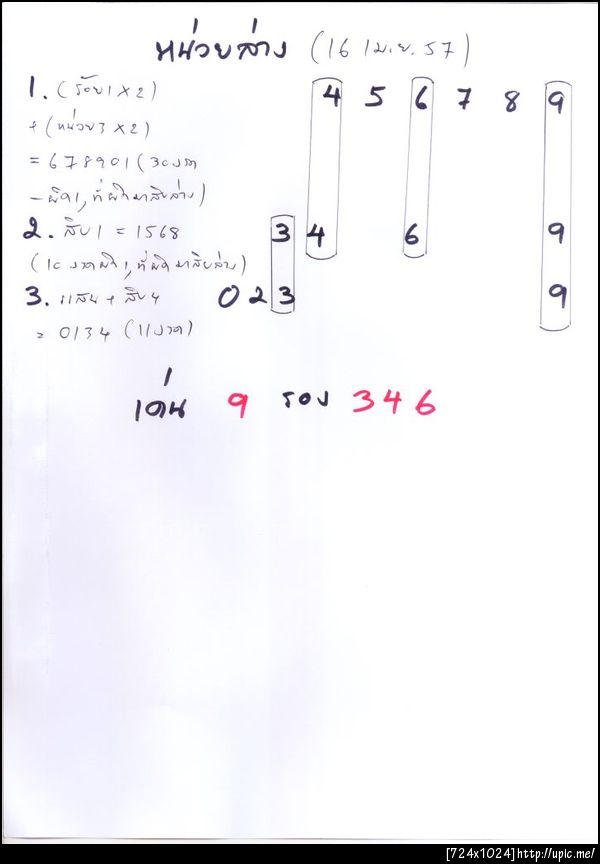 หน่วยล่าง (16 เม.ย. 57)
1. (ร้อย1 x 2) 4 5 6 7 8 9
+ (หน่วย3 x 2)
= 678901 (30งวด
- ผิด1, ที่ผิดมาสิบล่าง)
2. สิบ1 = 1568 3 4 6 9
(10 งวดผิด1, ที่ผิดมาสิบล่าง)
3. แสน + สิบ4 0 2 3 9
= 0134 (11งวด)
เด่น 9 รอง 3 4 6
[724x1024]http://upic.me/